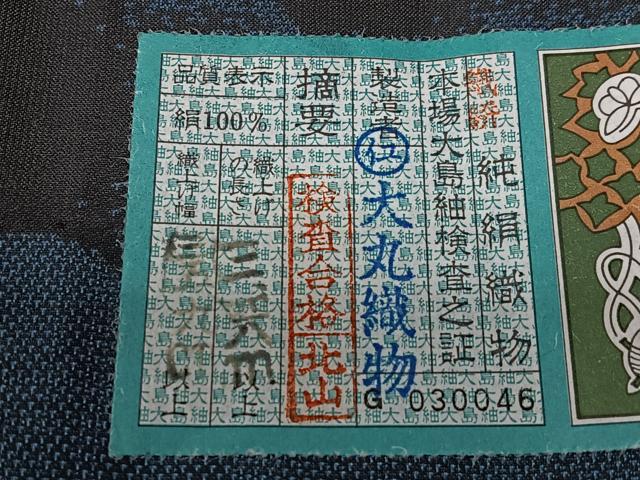 純絹織物
本場大島紬検査之証
製造者
大丸織物
G 030046
摘要
検査合格 北山
品質表示
絹100%
織上げの長さ
以上
織上げ幅
以上